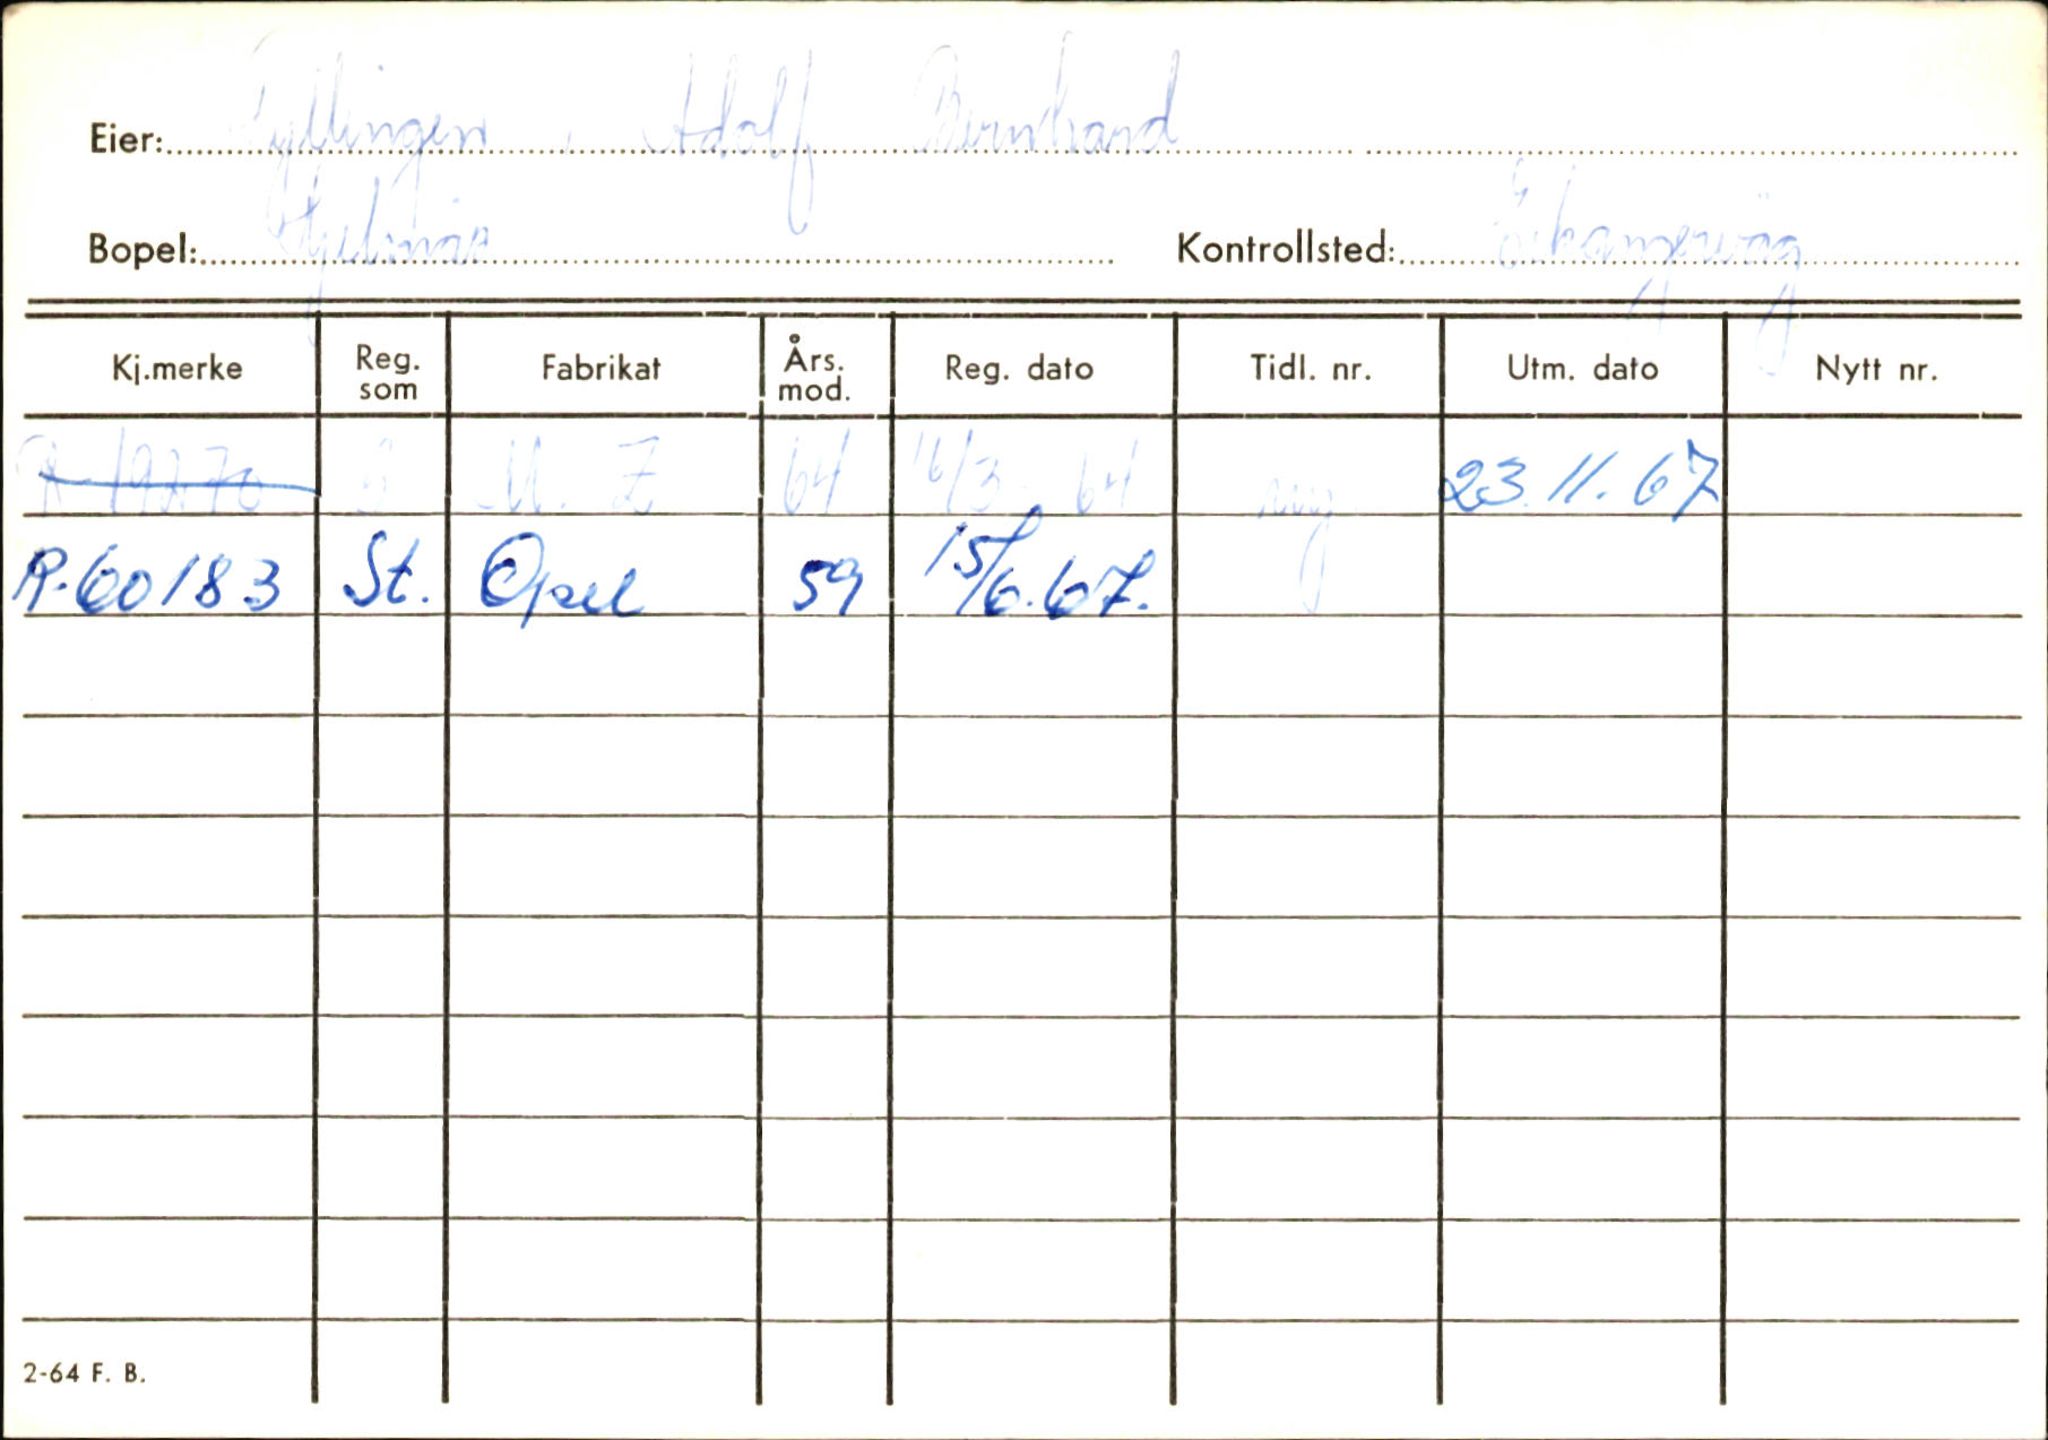 Eier: Fyllingen, Adolf Bernhard
Bopel: Hjelmås Kontrollsted: Eikangervåg
Kj.merke Reg. som Fabrikat Års. mod. Reg. dato Tidl. nr. Utm. dato Nytt nr.
M. Z 64 16/3 - 64 ny 23.11.67
R-60183 St. Opel 59 15/6.67.
2-64 F. B.